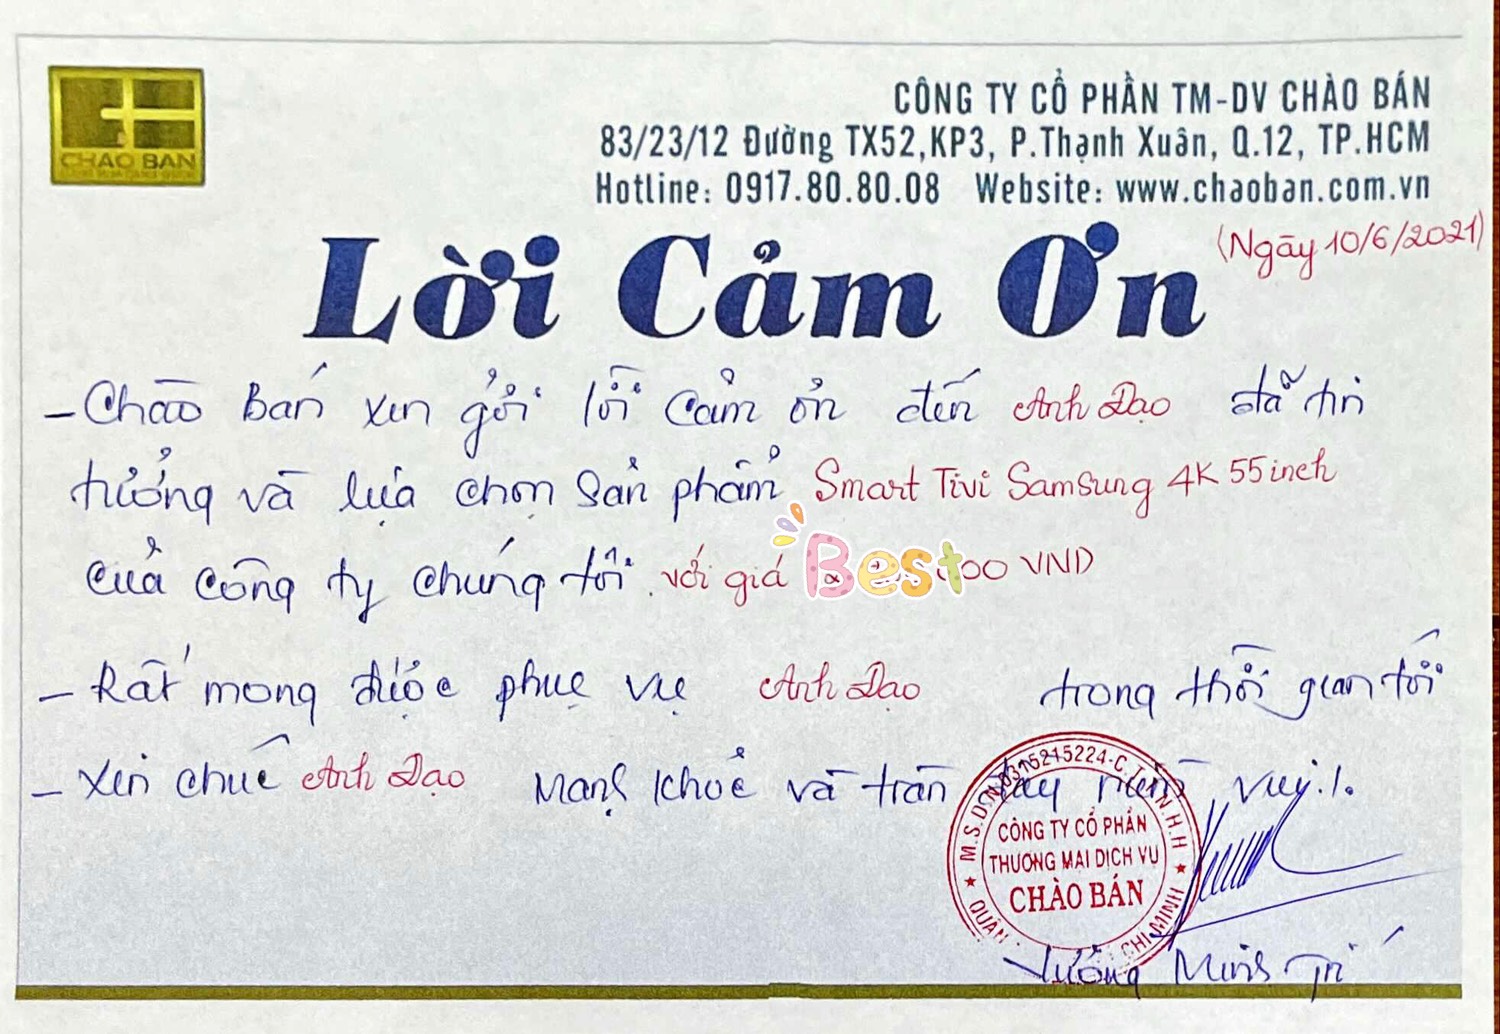 CHAO BAN
CÔNG TY CỔ PHẦN TM-DV CHÀO BÁN
83/23/12 Đường TX52,KP3, P.Thạnh Xuân, Q.12, TP.HCM
Hotline: 0917.80.80.08 Website: www.chaoban.com.vn
(Ngày 10/6/2021)
Lời Cảm Ơn
- Chào Bán xin gửi lời cảm ơn đến Anh Đạo đã tin
tưởng và lựa chọn sản phẩm Smart Tivi Samsung 4K 55 inch
của công ty chúng tôi. với giá Best 000 VNĐ
- Rất mong được phục vụ Anh Đạo trong thời gian tới
- Xin chúc Anh Đạo mạnh khoẻ và tràn đầy niềm vui./.
M.S.D.N:0315215224-C.T.T.N.H.H
CÔNG TY CỔ PHẦN
THƯƠNG MẠI DỊCH VỤ
CHÀO BÁN
QUẬN CHÍ MINH
Vương Minh Trí